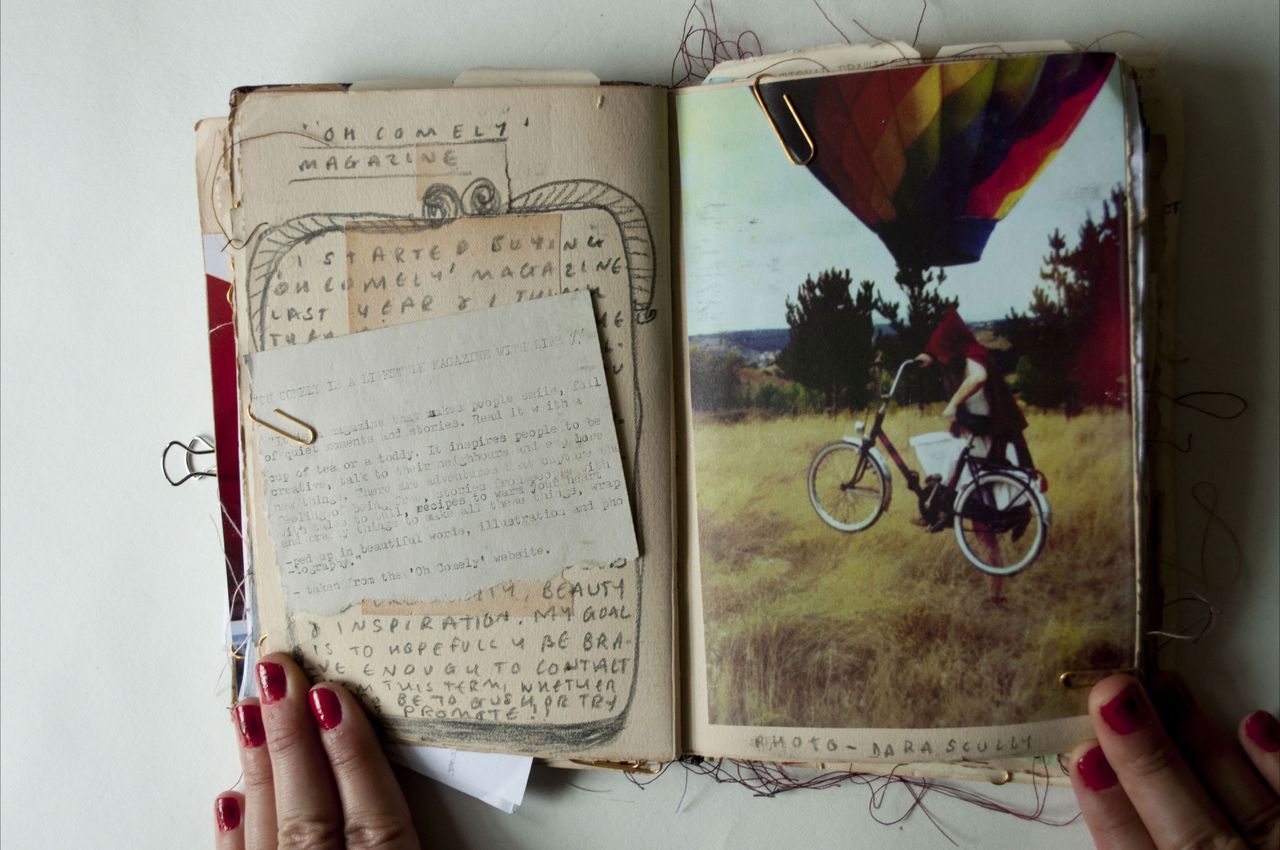 'OH COMELY'
MAGAZINE
'I STARTED BUYING
'OH COMELY' MAGAZINE
LAST YEAR & I THINK
"OH COMELY IS A LIFESTYLE MAGAZINE WITH LIFE
magazine that makes people smile, full
of quiet moments and stories. Read it with a
cup of tea or a toddy. It inspires people to be
creative, talk to their neighbours and
new things. There are adventures that capture the
feeling of being, stories from people with
with tales to tell, recipes to warm your heart
and crafty things to make all these things, wrap
-ped up in beautiful words, illustration and pho
-tography."
- taken from the 'Oh Comely' website.
BEAUTY
& INSPIRATION. MY GOAL
IS TO HOPEFULLY BE BRA-
VE ENOUGH TO CONTACT
THIS TERM, WHETHER
BE TO GUSH OR TRY
PROMOTE!
PHOTO - DARA SCULLY